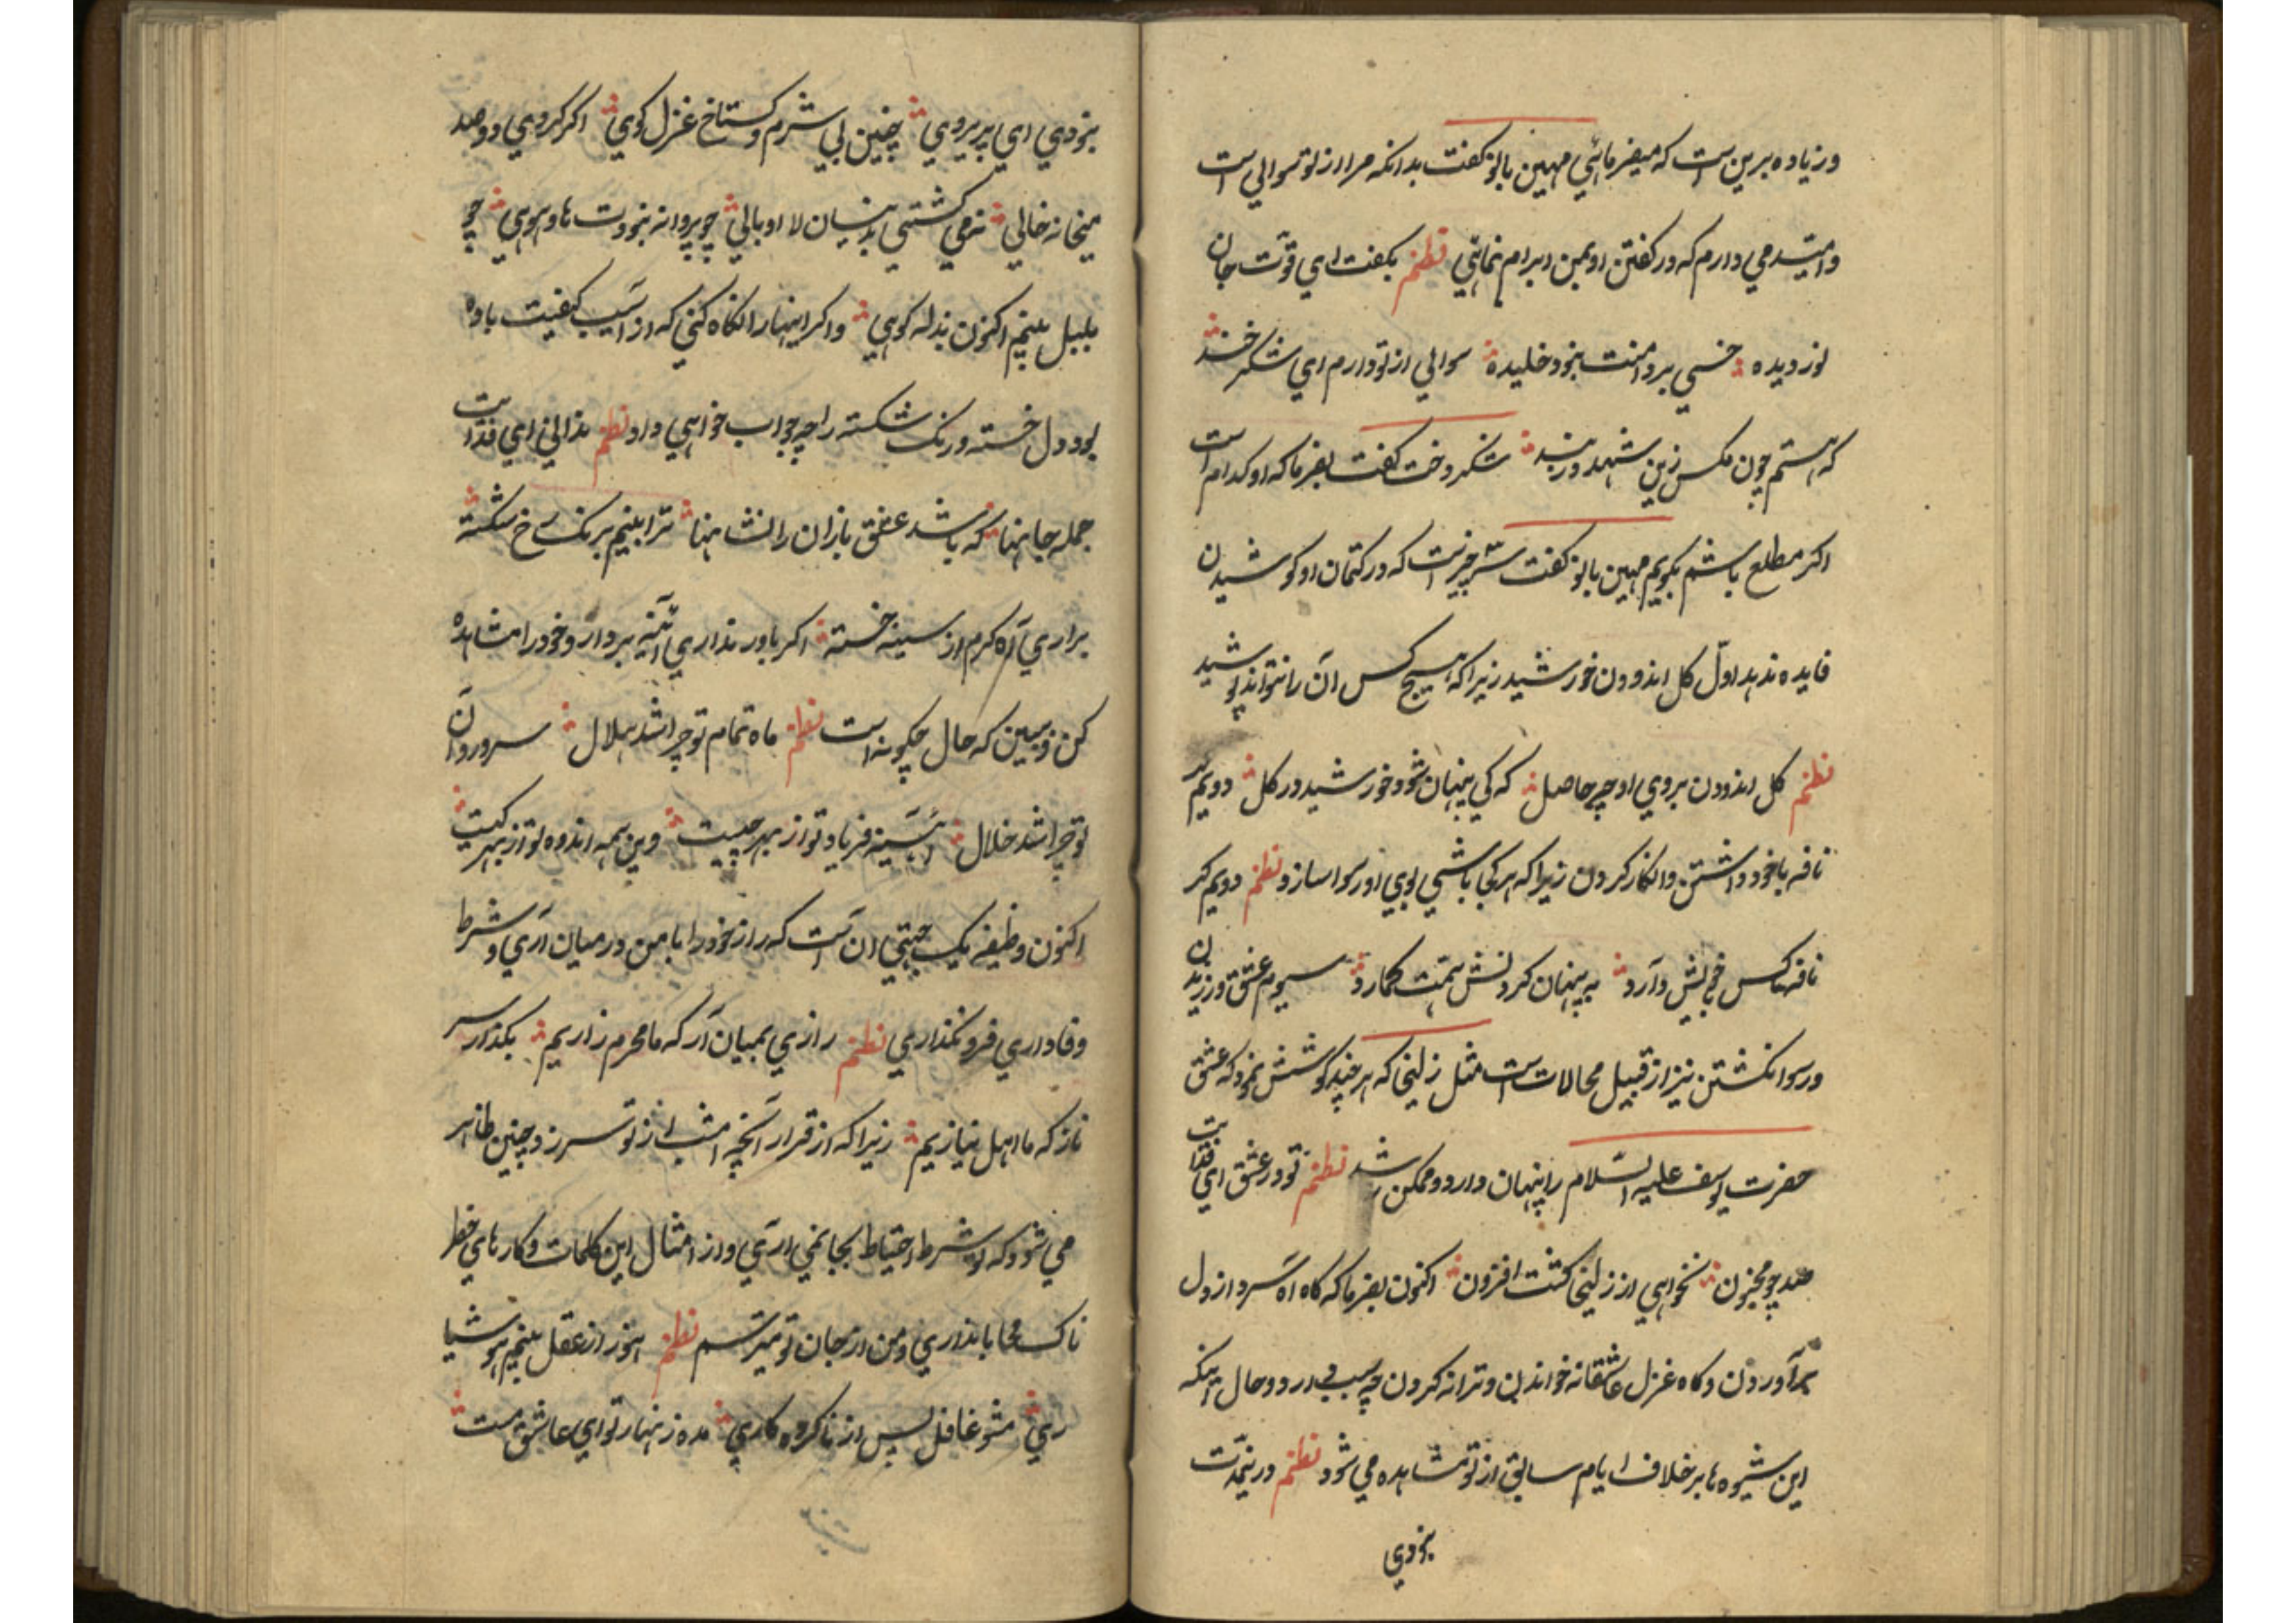 و زیاده برین است که میفرمائی مهین بانو کفت بدانکه مرا از تو سوالی است
و امید می دارم که در کفتن او بمن ابرام نمائی نظم بکفت ای قوت جان
نور دیده خسی بر دامنت بنود خلیده سوالی از تو دارم ای شکر خند
که هستم چون مکس زین شهد در بند شکر دخت کفت بفرما که او کدام است
اکر مطلع باشم بکویم مهین بانو کفت سه چیز است که در کتمان او کوشیدن
فایده ندهد اول کل اندودن خورشید زیرا که هیچ کس آن را نتواند پوشید
نظم کل اندودن بروی او چه حاصل که کی پنهان شود خورشید در کل دویم
نافه با خود داشتن و انکار کردن زیرا که هر کی باشی بوی او رسوا سازد نظم دویم کر
نافه کس فی به پنهان کردنش همت کمارد سیوم عشق ورزیدن
و رسوا نکشتن نیز از قبیل محالات است مثل زلیخا که هر چند کوشش نمود که عشق
حضرت یوسف علیه السلام را پنهان دارد و ممکن نشد نظم تو در عشق ای
صد چو مجنون نخواهی از زلیخا کشت افزون اکنون بفرما که کاه آه سرد از دل
برآوردن و کاه غزل عاشقانه خواندن و ترانه کردن چه سبب دارد و حال اینکه
این شیوه ها بر خلاف ایام سابق از تو مشاهده می شود نظم درینمدت
بنودی
بنودی ای پریروی چنین بی شرم و کستاخ غزل کوی اکر کردی دو صد
میخانه خالی نمی کشتی بدینسان لا اوبالی چو پروانه بنودت های و هوی چو
بلبل بینم اکنون بذله کوی و اکر اینها را انکاه کنی که از آسیب کیفیت باده
بود دل خسته و رنک شکسته را چه جواب خواهی داد نظم ندانی ای فدایت
جمله جانها که باشد عشق بازان را نشانها ترا بینم برنک رخ شکسته
براری آه کرم از سینه خسته اکر باور نداری آئینه بردار و خود را مشاهده
کن و ببین که حال چکونه است نظم ماه تمام تو چرا شد هلال سرو روان
تو چرا شد خلال فریاد تو از بهر چیست وین همه اندوه تو از بهر کیست
اکنون وظیفه یک جهتی آن است که راز خود را با من در میان آری و شرط
وفاداری فرو نکذاری نظم رازی بمیان آر که ما محرم رازیم بکذار سر
ناز که ما اهل نیازیم زیرا که از قرار آنچه امشب از تو سر زد چنین ظاهر
می شود که تو شرط احتیاط بجا نمی اری و از امثال این کلمات و کارهای خطر
ناک محابا نداری و من از جان تو میترسم نظم هنوز از عقل بینم هوشیا
ری مشو غافل پس از ناکرده کاری مده زنهار تو ای عاشق مست